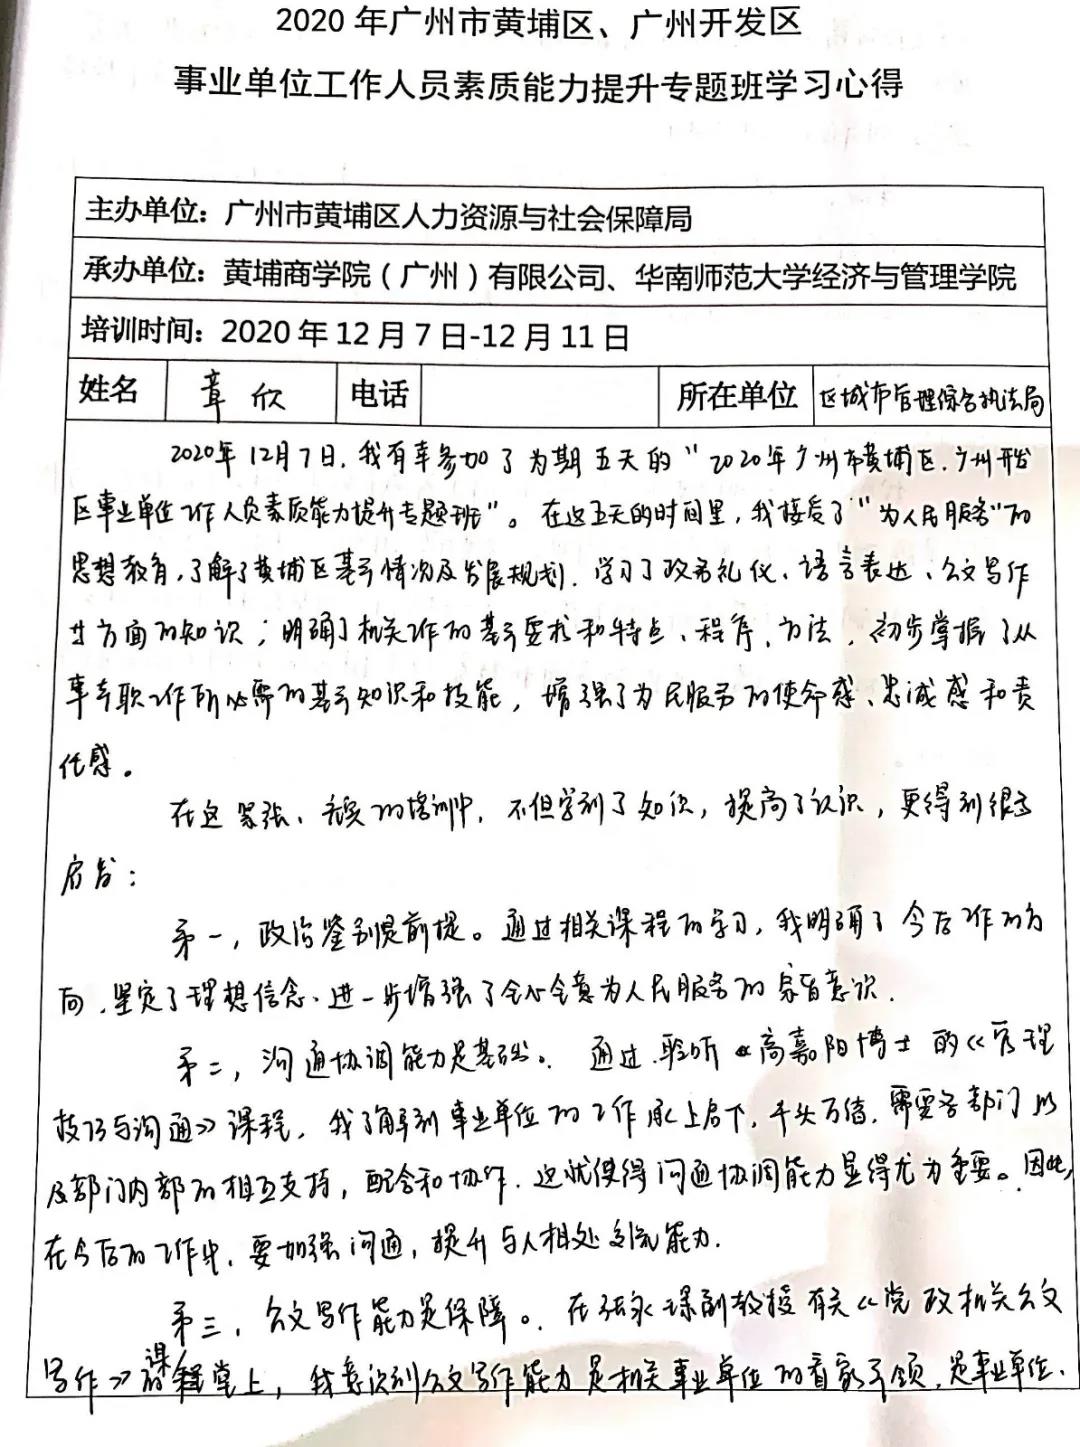 2020 年广州市黄埔区、广州开发区
事业单位工作人员素质能力提升专题班学习心得
主办单位：广州市黄埔区人力资源与社会保障局
承办单位：黄埔商学院（广州）有限公司、华南师范大学经济与管理学院
培训时间：2020 年 12 月 7 日-12 月 11 日
姓名 章欣 电话 所在单位 区城市管理综合执法局
2020年12月7日，我有幸参加了为期五天的“2020年广州市黄埔区、广州开发
区事业单位工作人员素质能力提升专题班”。在这五天的时间里，我接受了“为人民服务”的
思想教育，了解了黄埔区基本情况及发展规划，学习了政务礼仪、语言表达、公文写作
等方面的知识；明确了机关工作的基本要求和特点、程序、方法，初步掌握了从
事本职工作所必需的基本知识和技能，增强了为民服务的使命感、忠诚感和责
任感。
在这紧张、充实的培训中，不但学到了知识，提高了认识，更得到很多
启发：
第一，政治鉴别是前提。通过相关课程的学习，我明确了今后工作的方
向，坚定了理想信念、进一步增强了全心全意为人民服务的宗旨意识。
第二，沟通协调能力是基础。通过聆听高嘉阳博士的《管理
技巧与沟通》课程，我了解到事业单位的工作承上启下，千头万绪，需要各部门以
及部门内部的相互支持，配合和协作，这就使得沟通协调能力显得尤为重要。因此，
在今后的工作中，要加强沟通，提升与人相处交流能力。
第三，公文写作能力是保障。在张永璟副教授有关《党政机关公文
写作》的课程堂上，我意识到公文写作能力是机关事业单位的看家本领，是事业单位